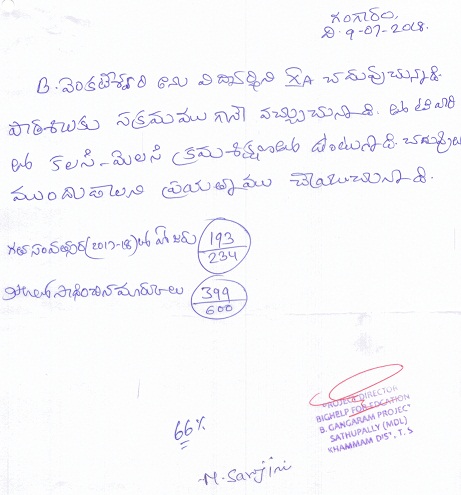 గంగారం,
ది. 9-07-2018.
B. వెంకటేశ్వరి అను విద్యార్థిని XA చదువుచున్నది.
పాఠశాలకు సక్రమముగానే వచ్చుచున్నది.
కలసి-మెలసి క్రమశిక్షణతో ఉంటున్నది.
ముందుండాలని ప్రయత్నము చేయుచున్నది.
గత సంవత్సర (2017-18) హాజరు 193/234
సాధించిన మార్కులు 399/600
66%
M. Sarojini
PROJECT DIRECTOR
BIGHELP FOR EDCATION
B. GANGARAM PROJECT
SATHUPALLY (MDL)
KHAMMAM DIST, T. S